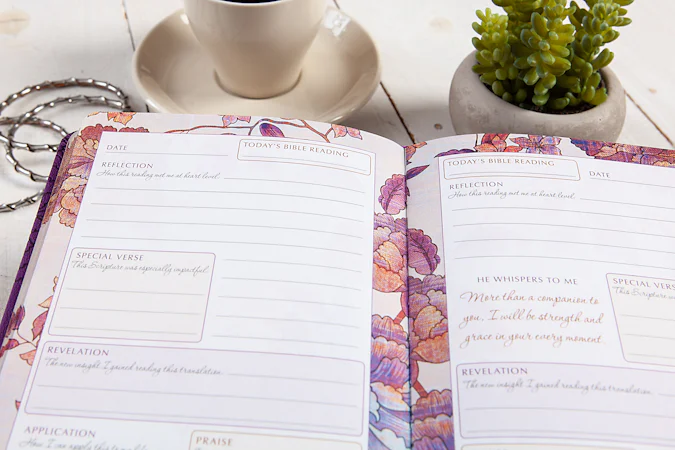 DATE
TODAY'S BIBLE READING
REFLECTION
How this reading met me at heart level.
SPECIAL VERSE
This Scripture was especially impactful.
REVELATION
The new insight I gained reading this translation.
APPLICATION
How I can apply this
PRAISE
TODAY'S BIBLE READING
DATE
REFLECTION
How this reading met me at heart level.
HE WHISPERS TO ME
More than a companion to
you, I will be strength and
grace in your every moment.
SPECIAL VERSE
This Scripture was
REVELATION
The new insight I gained reading this translation.